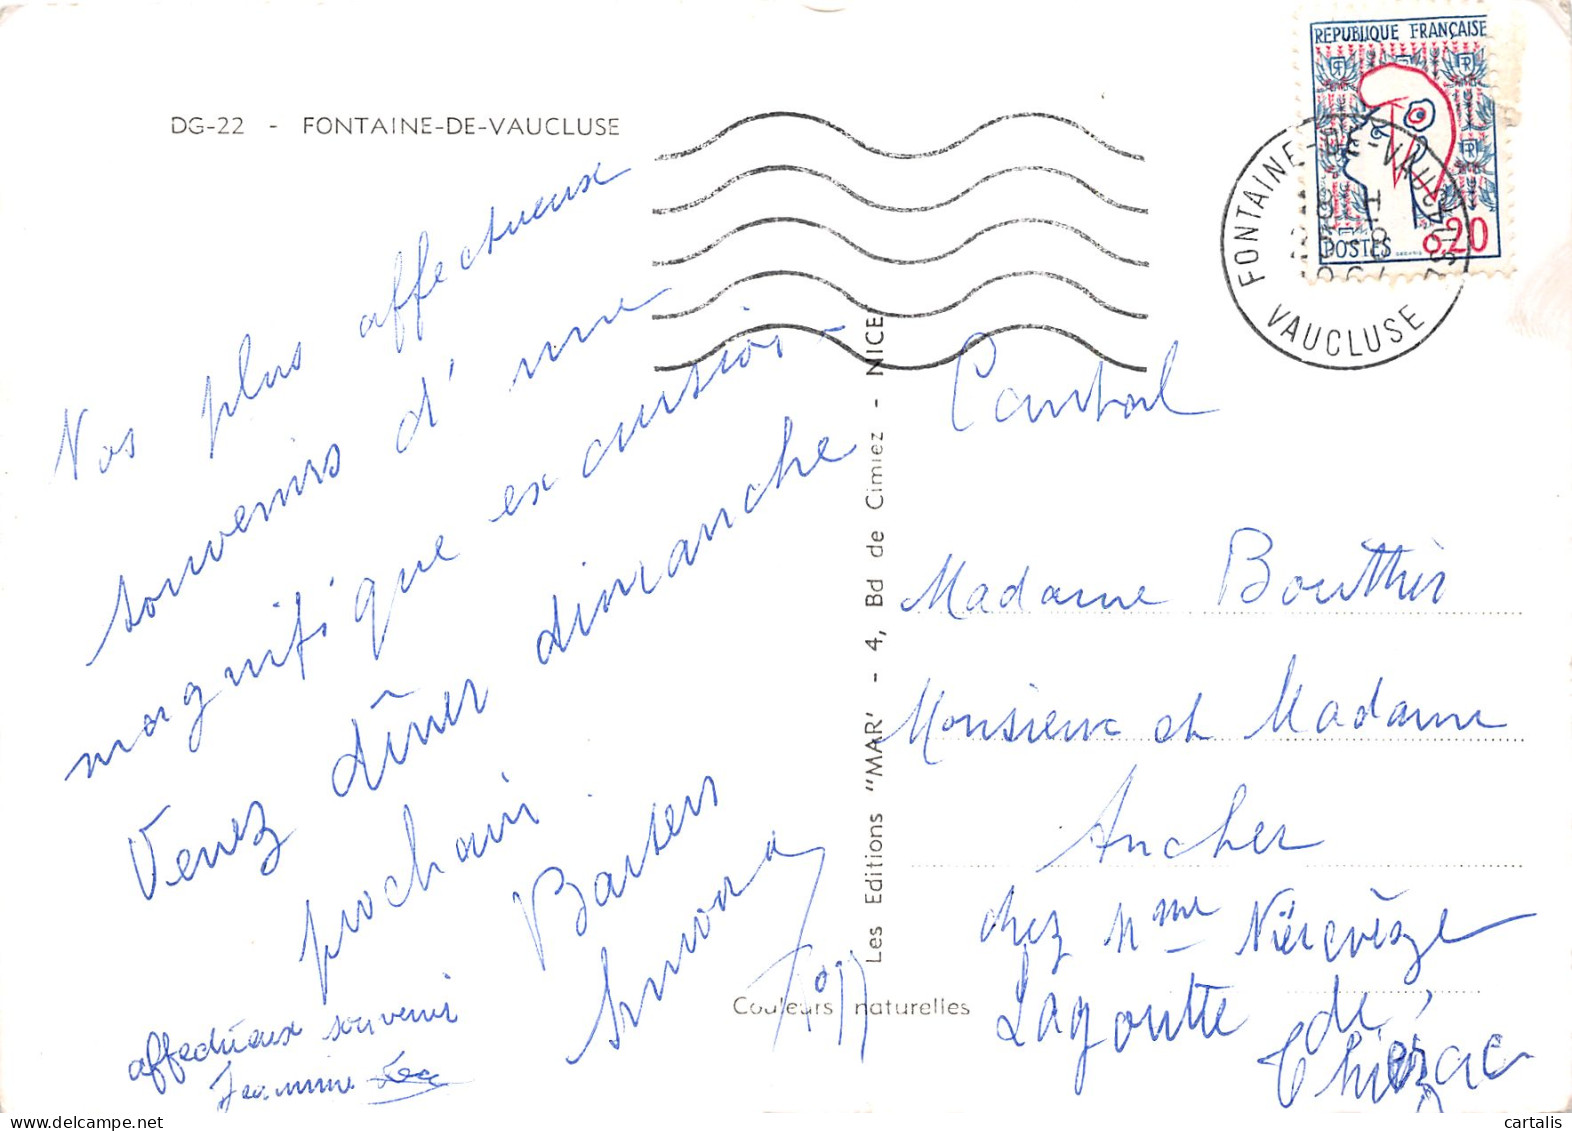 DG-22 - FONTAINE-DE-VAUCLUSE
Nos plus affectueux
souvenirs d'une
magnifique excursion
Venez dîner dimanche
prochain
Baisers
Simona
affectueux souvenir
Jeannine
Les Editions "MAR" - 4, Bd de Cimiez - NICE
Couleurs naturelles
REPUBLIQUE FRANÇAISE
RF
POSTES 0,20
FONTAINE-DE-VAUCLUSE
VAUCLUSE
Cantal
Madame Bouthier
Monsieur et Madame
Ancher
chez Mme
Lagoutte de
Thiézac
cartalis